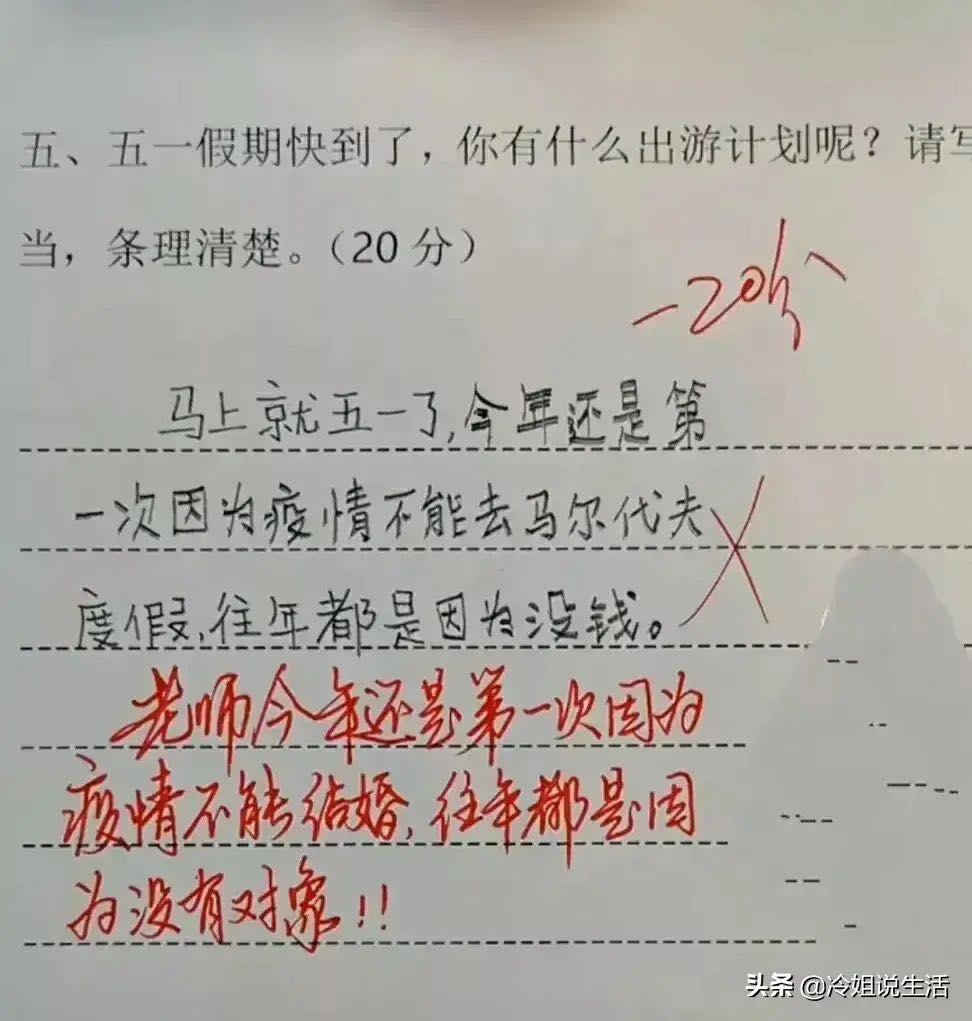 五、五一假期快到了，你有什么出游计划呢？请写
当，条理清楚。（20分）
-20分
马上就五一了,今年还是第
一次因为疫情不能去马尔代夫
度假,往年都是因为没钱。
老师今年还是第一次因为
疫情不能结婚,往年都是因
为没有对象!!
头条 @冷姐说生活